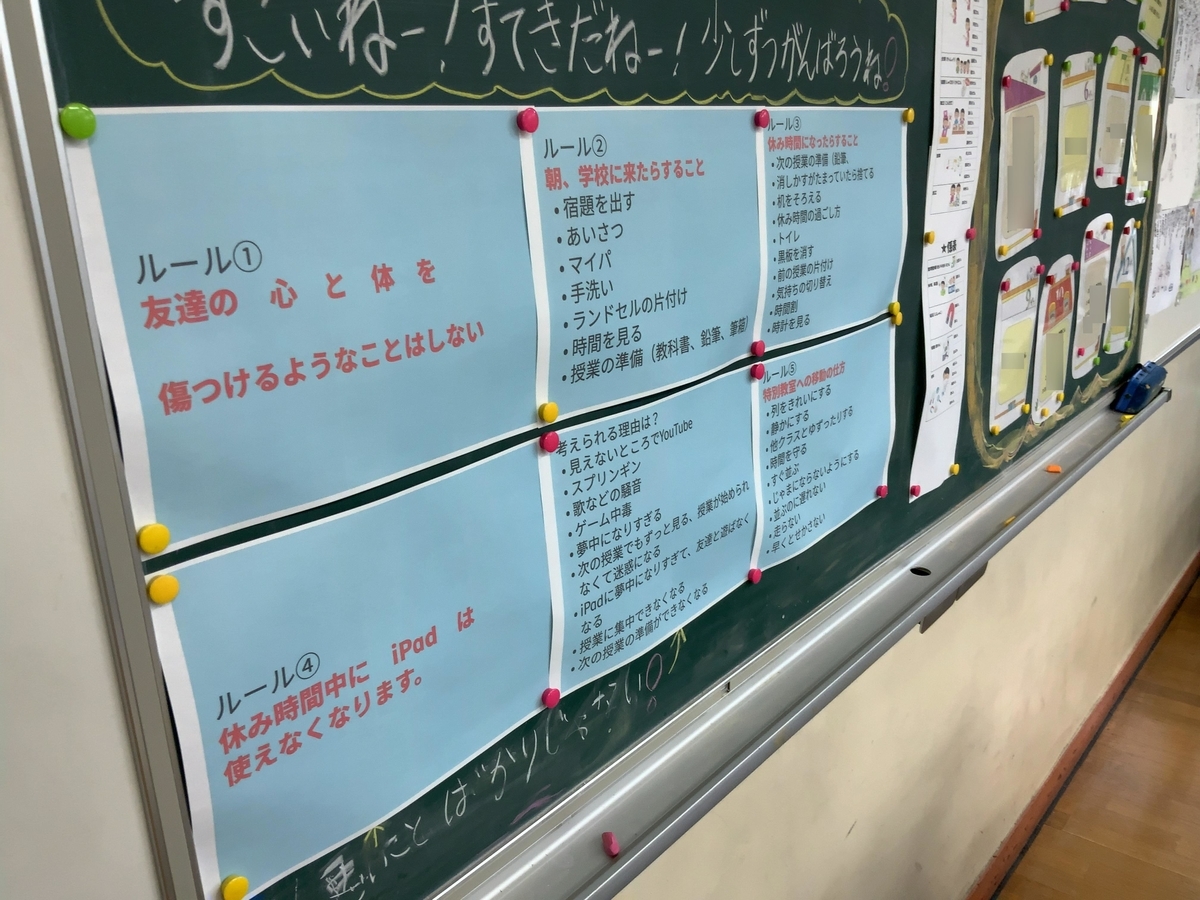 すごいねー!すてきだねー!少しずつがんばろうね!
ルール①
友達の 心 と 体 を
傷つけるようなことはしない
ルール②
朝、学校に来たらすること
・宿題を出す
・あいさつ
・マイパ
・手洗い
・ランドセルの片付け
・時間を見る
・授業の準備(教科書、鉛筆、筆箱)
ルール③
休み時間になったらすること
・次の授業の準備(鉛筆、
・消しかすがたまっていたら捨てる
・机をそろえる
・休み時間の過ごし方
・トイレ
・黒板を消す
・前の授業の片付け
・気持ちの切り替え
・時間割
・時計を見る
ルール④
休み時間中に iPad は
使えなくなります。
考えられる理由は?
・見えないところでYouTube
・スプリンギン
・歌などの騒音
・ゲーム中毒
・夢中になりすぎる
・次の授業でもずっと見る、授業が始められ
なくて迷惑になる
・iPadに夢中になりすぎて、友達と遊ばなく
なる
・授業に集中できなくなる
・次の授業の準備ができなくなる
ルール⑤
特別教室への移動の仕方
・列をきれいにする
・静かにする
・他クラスとゆずったりする
・時間を守る
・すぐ並ぶ
・じゃまにならないようにする
・並ぶのに遅れない
・走らない
・早くとせかさない
ことばかりじゃない!